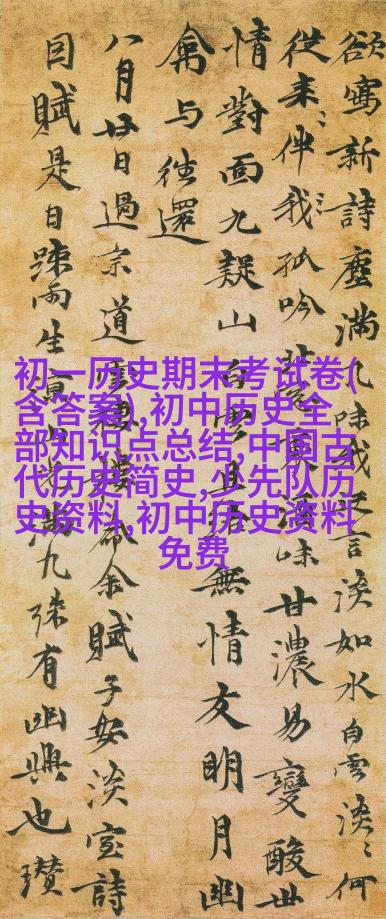 欲寫新詩塵滿几味我言淡如水白雲淡〻何
從来〻伴我〻孤吟味甘濃易變酸世
情對面九疑山白雲且無情友明月幽
禽与往還
八月廿日過宗道命余賦子安淡室詩
因賦是日踈雨生九殊有幽興也瓚
初一历史期末考试卷(
含答案),初中历史全
部知识点总结,中国古
代历史简史,少先队历
史资料,初中历史资料
免费